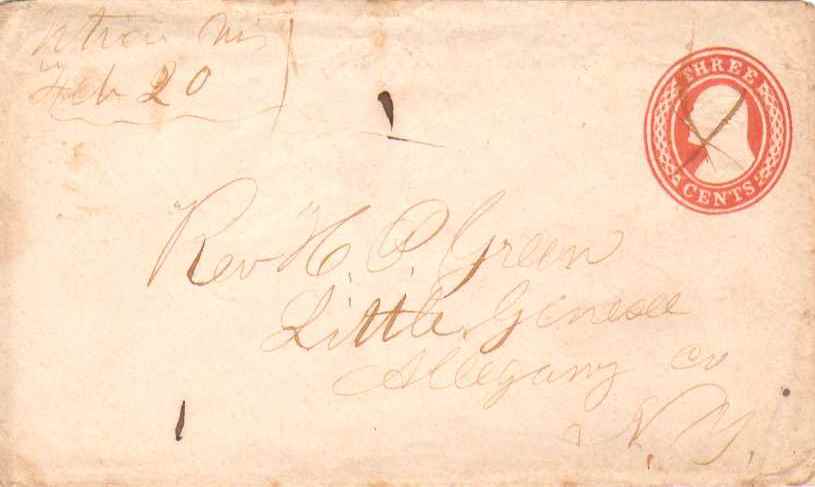 Utica Wis
Feb 20
THREE
CENTS
Rev H. P. Green
Little Genesee
Allegany co
N. Y.